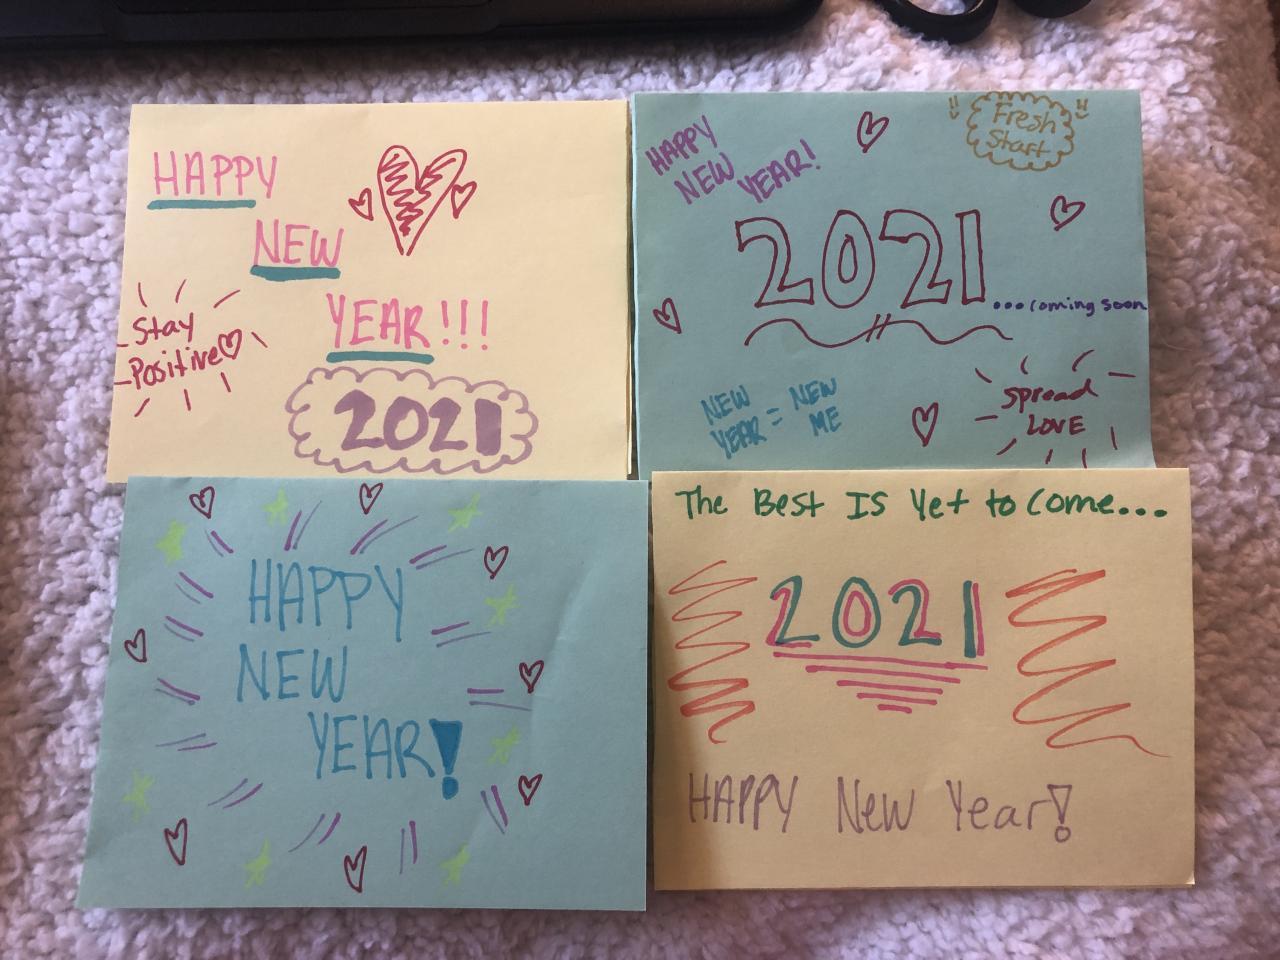 HAPPY
NEW
YEAR!!!
Stay
Positive
2021
HAPPY
NEW
YEAR!
!! Fresh !!
Start
2021
...coming soon
NEW
YEAR = NEW
ME
Spread
LOVE
HAPPY
NEW
YEAR!
The Best Is Yet to Come...
2021
HAPPY New Year!